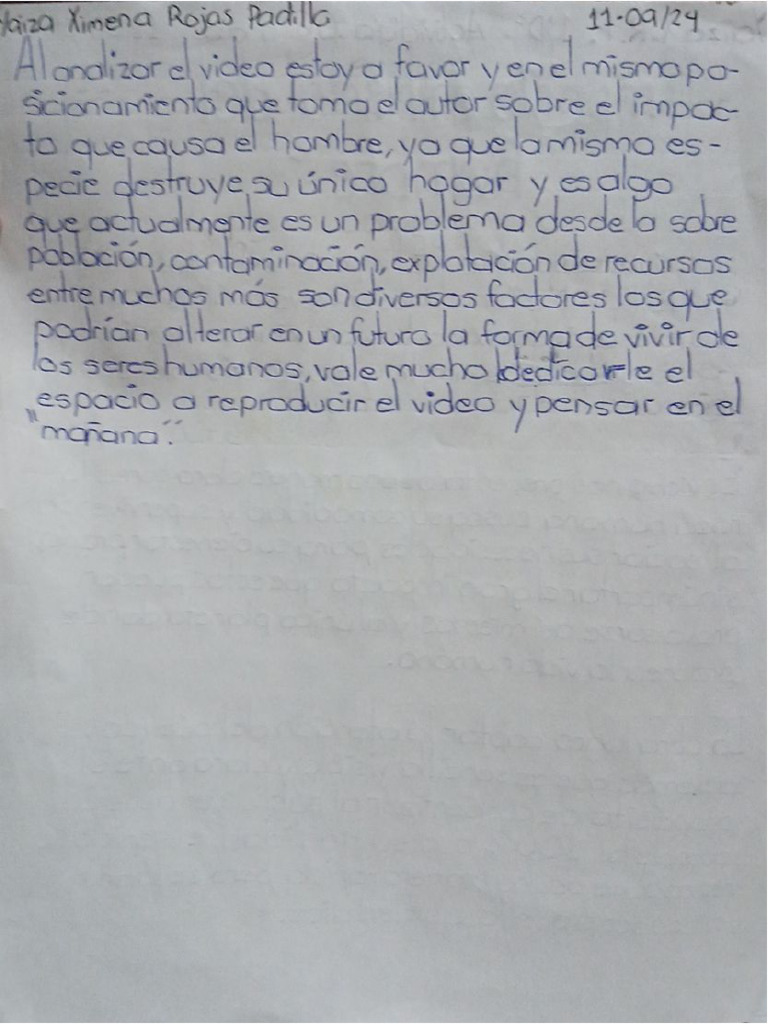 Ximena Rojas Padilla 11-09/24
Al analizar el video estoy a favor y en el mismo po-
sicionamiento que toma el autor sobre el impac-
to que causa el hombre, ya que la misma es-
pecie destruye su único hogar y es algo
que actualmente es un problema desde la sobre
población, contaminación, explotación de recursos
entre muchos más son diversos factores los que
podrían alterar en un futuro la forma de vivir de
los seres humanos, vale mucho dedicarle el
espacio a reproducir el video y pensar en el
"mañana".